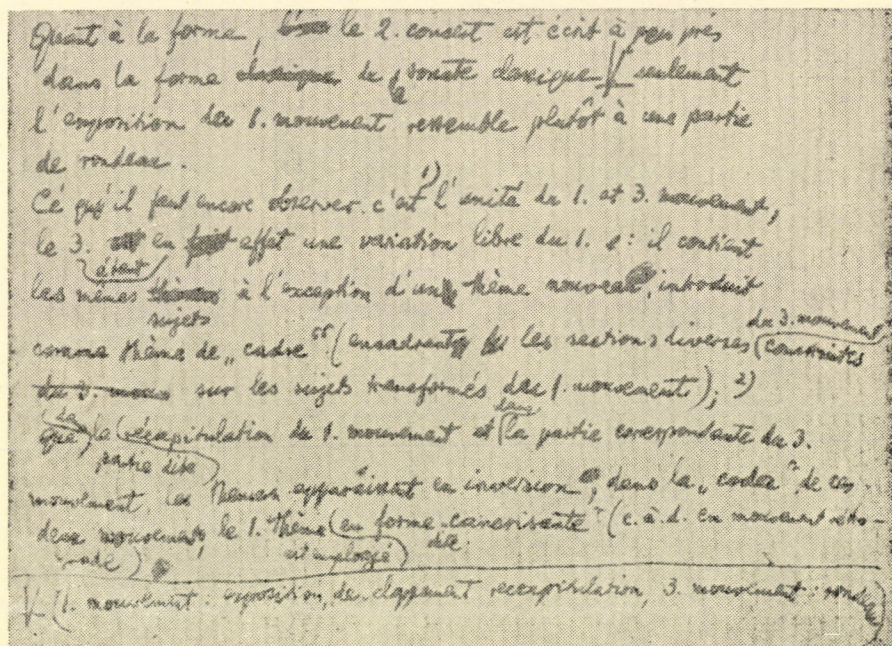 Quant à la forme, le 2. consert est écrit à peu près
dans la forme classique de la sonate classique V seulement
l'exposition du 1. mouvement ressemble plutôt à une partie
de rondeau.
Ce qu'il faut encore observer c'est 1) l'unité du 1. et 3. mouvement,
le 3. étant en effet une variation libre du 1. : il contient
les mêmes thèmes sujets à l'exception d'un thème nouveau, introduit
du 3. mouvement
comme thème de „cadre" (encadrant les sections diverses construites
du 3. mouv sur les sujets transformés du 1. mouvement); 2)
que, la partie dite récapitulation du 1. mouvement et dans la partie corespondante du 3.
mouvement, les themen apparaissent en inversion, dans la „coda" de ces
deux mouvements le 1. thème est employé en forme cancrisante dite (c. à. d. en mouvement rétro-
grade)
V (1. mouvement: exposition, de cloppement recapitulation, 3. mouvement: rondeau)